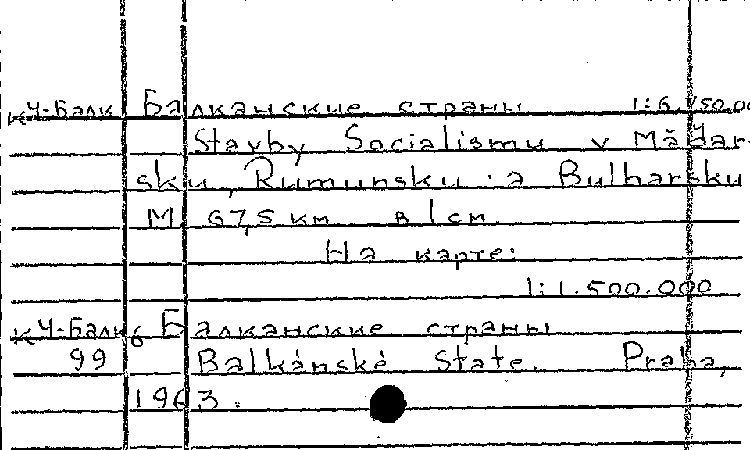 кЧ-Балк Балканские страны 1:6.750.00
Stavby Socialismu v Maďar-
sku, Rumunsku a Bulharsku
М 67,5 км в 1 см
На карте:
1:1.500.000
кЧ-Балк6 Балканские страны
99 Balkánské State. Praha,
1963.